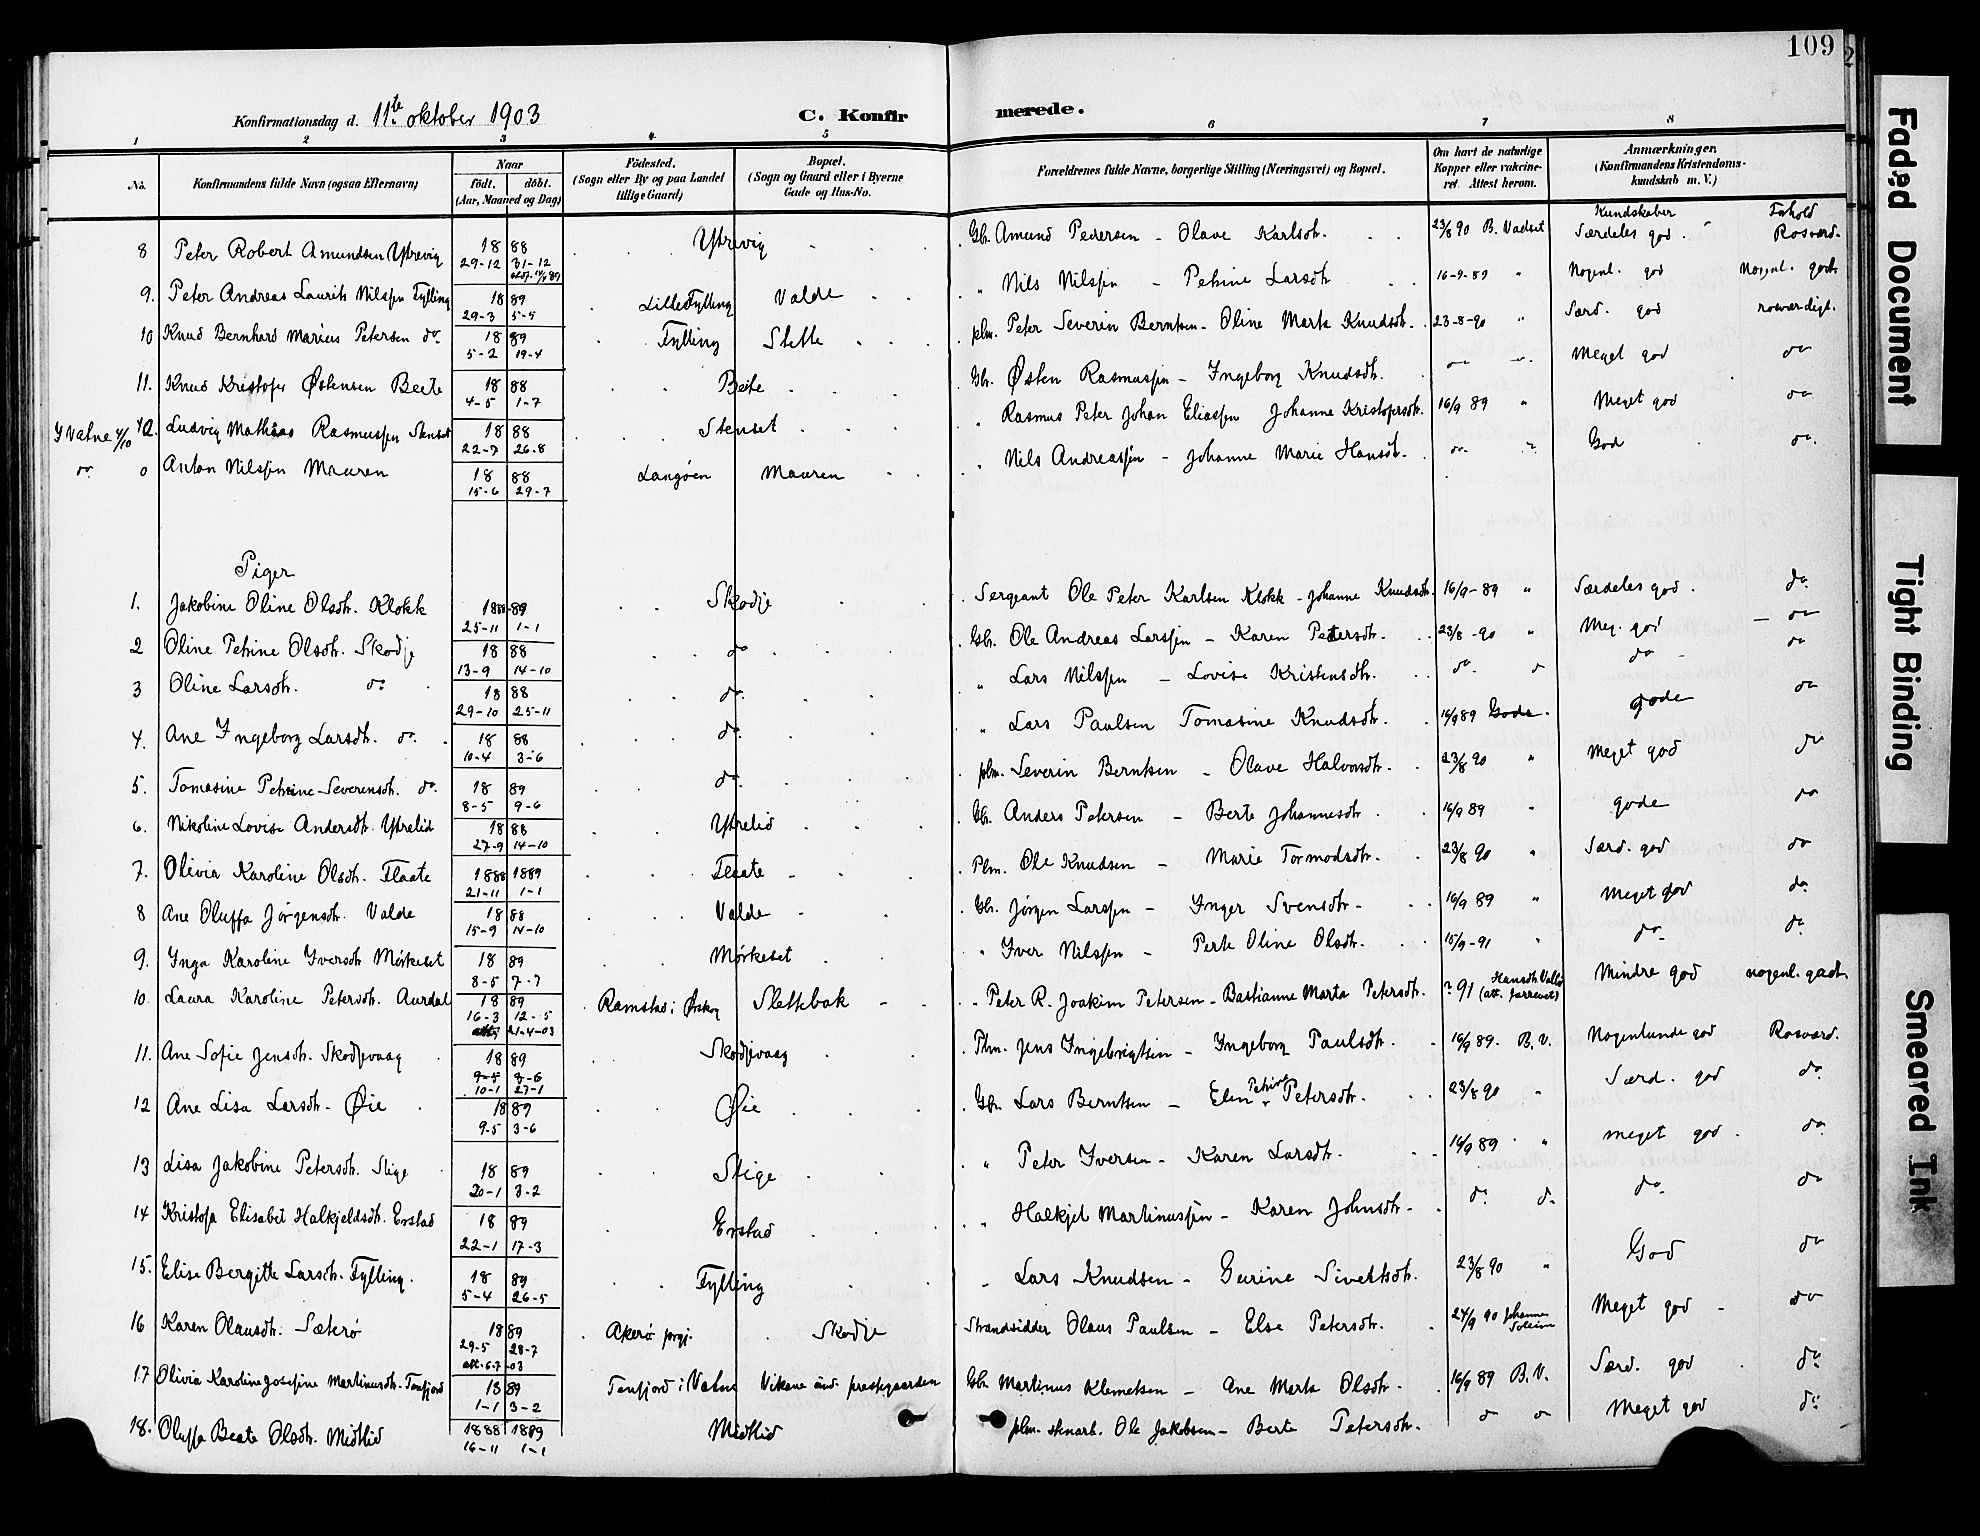 109
Konfirmationsdag d. 11te oktober 1903 C. Konfirmerede.
1 2 3 4 5 6 7 8
No. Konfirmandens fulde Navn (ogsaa Efternavn) Naar født. døbt. (Aar, Maaned og Dag) Fødested. (Sogn eller By og paa Landet tillige Gaard) Bopæl. (Sogn og Gaard eller i Byerne Gade og Hus-No.) Forældrenes fulde Navne, borgerlige Stilling (Næringsvei) og Bopæl. Om havt de naturlige Kopper eller vakcineret. Attest herom. Anmærkninger. (Konfirmandens Kristendomskundskab m. V.)
Kundskaber Forhold
8 Peter Robert Amundsen Ytrevig 1888 29-12 31-12 Ytrevig Gb. Amund Pedersen - Olave Karlsdtr. 23/8 90 B. Vadset Særdeles god. Rosværd.
9. Peter Andreas Laurits Nilssen Fylling 1889 29-3 5-5 Lille Fylling Valde " Nils Nilssen - Petrine Larsdtr 16-9-89 " Nogenl. god Nogenl. godt
10 Knud Bernhard Marius Petersen do. 1889 5-2 19-4 Fylling Slette plm. Peter Severin Berntsen - Oline Marta Knudsdtr. 23-8-90 " Særd. god rosværdigt.
11. Knud Kristofer Østensen Beite 1888 4-5 1-7 Beite Gb. Østen Rasmussen - Ingeborg Knudsdtr. do do. Meget god do
I Vatne 4/10 12. Ludvig Mathias Rasmussen Stenset 1888 22-7 26-8 Stenset " Rasmus Peter Johan Eliassen Johanne Kristofersdtr. 16/9 89 " Meget god do
do. 0 Anton Nilssen Mauren 1888 15-6 29-7 Langøen Mauren " Nils Andreassen - Johanne Marie Hansdtr. do. " God do.
Piger
1. Jakobine Oline Olsdtr. Klokk 1888-89 25-11 1-1 Skodje Sergeant Ole Peter Karlsen Klokk - Johanne Knudsdtr. 16/9-89 " Særdeles god. do.
2 Oline Petrine Olsdtr. Skodje 1888 13-9 14-10 do. Gb. Ole Andreas Larssen - Karen Petersdtr. 23/8-90 " Meg. god - do
3 Oline Larsdtr. do. 1888 29-10 25-11 do. " Lars Nilssen - Lovise Kristensdtr. do. do do - do
4. Ane Ingeborg Larsdtr. do. 1888 10-4 3-6 do. " Lars Paulsen Tomasine Knudsdtr. 16/9 89 Gode. gode do
5. Tomasine Petrine Severensdtr. do. 1889 8-5 9-6 do. plm. Severin Berntsen - Olave Halvorsdtr. 23/8 90 " Meget god do
6. Nikoline Lovise Andersdtr. Ytrelid 1888 27-9 14-10 Ytrelid Gb. Anders Petersen - Berte Johannesdtr 16/9 89 " gode do
7. Olivia Karoline Olsdtr. Flaate 1888 1889 21-11 1-1 Flaate Plm. Ole Knudsen - Marie Tormodsdtr. 23/8 90 " Særd. god do
8 Ane Oluffa Jørgensdtr. Valde 1888 15-9 14-10 Valde Gb. Jørgen Larssen - Inger Svensdtr - 16/9 89 " Meget god do.
9. Inga Karoline Iversdtr Mørkeset 1889 8-5 7-7 Mørkeset " Iver Nilssen - Perte Oline Olsdtr. 15/9-91 " do. do.
10. Laura Karoline Petersdtr. Aurdal 1889 16-3 12-5 21-4-03 Ramstad i Ørskog Slettebak - " Peter R. Joakim Petersen - Bastianne Marta Petersdtr. ? 91 Mindre god nogenl. godt
11. Ane Sofie Jensdtr. Skodjevaag 1889 9-5 8-6 10-1 27-1 Skodjevaag Plm. Jens Ingebrigtsen - Ingeborg Paulsdtr. 16/9 89. B.V. Nogenlunde god Rosværd.
12 Ane Lisa Larsdtr. Øie 1889 9-5 3-6 Øie Gb. Lars Berntsen - Elen Petrine Petersdtr. 23/8 90 " Særd. god do.
13 Lisa Jakobine Petersdtr. Stige 1889 20-1 3-2 Stige " Peter Iversen - Karen Larsdtr. 16/9 89 " meget god. do.
14 Kristofa Elisabet Halkjeldsdtr. Erstad 1889 22-1 17-3 Erstad " Halkjel Martinussen - Karen Johnsdtr - do. do. do. do
15. Elise Bergitte Larsdtr. Fylling. 1889 5-4 26-5 Fylling " Lars Knudsen - Gurine Sivertsdtr. 23/8 90 " God do
16 Karen Olausdtr. Sæterø 1889 29-5 28-7 att. 6-7-03 Akerø prgj. Skodje Strandsidder Olaus Paulsen - Else Petersdtr. 24/9 90 Johanne Soleim Meget god - do
17 Olivia Karoline Josefine Martinusdtr. Tenfjord 1889 1-1 3-2 Tenfjord i Vatne Vikane ind. prestegaarden Gb. Martinus Klemetsen - Ane Marta Olsdtr - 16/9 89 B.V. Særd. god do.
18. Oluffa Beate Olsdtr. Midtlid 1888 1889 16-11 1-1 Midtlid plm. stenarb. Ole Jakobsen - Berte Petersdtr. do do Meget god do.
Faded Document
Tight Binding
Smeared Ink